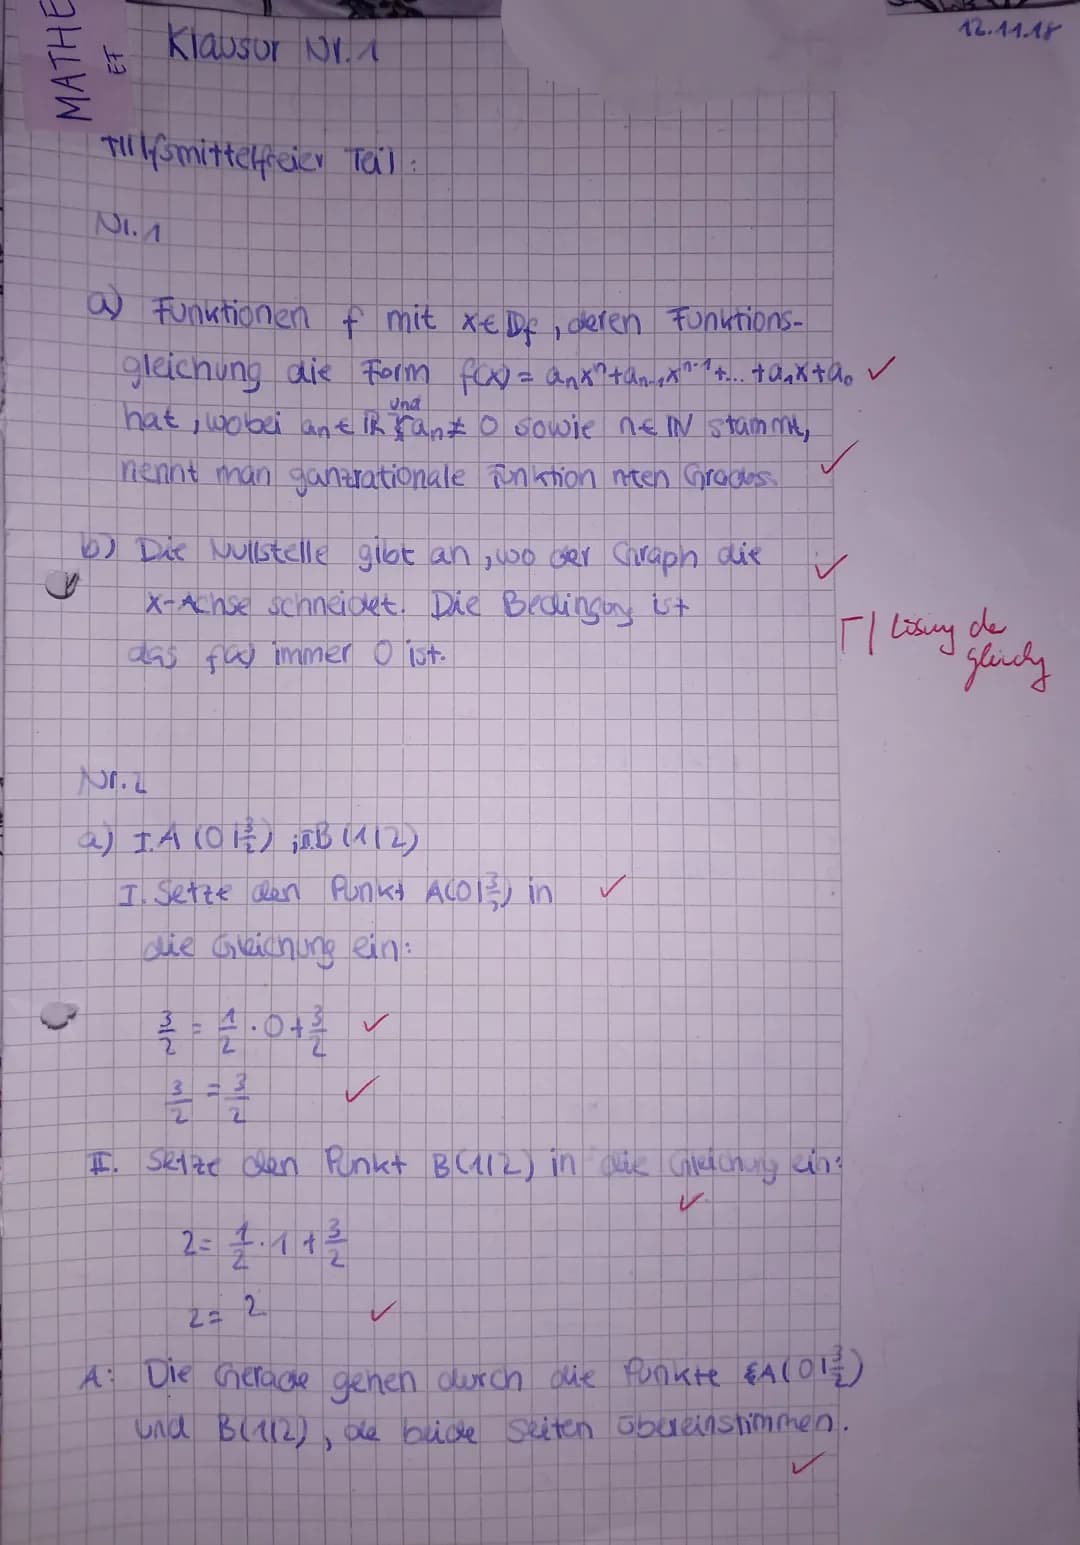 MATHE
EF
Klausur Nr. 1
12.11.18
Hilfsmittelfreier Teil:
Nr. 1
a) Funktionen f mit x∈Df, deren Funktions-
gleichung die Form f(x) = aₙxⁿ+aₙ₋₁xⁿ⁻¹+... +a₁x+a₀ ✓
hat, wobei an ∈ ℝ und an ≠ 0 sowie n∈ℕ stammt,
nennt man ganzrationale Funktion nten Grades. ✓
b) Die Nullstelle gibt an, wo der Graph die ✓
x-Achse schneidet. Die Bedingung ist
das f(x) immer 0 ist.
Γ| Lösung der
Nr. 2
a) I. A (0|3/2) ; II. B (1|2)
I. Setze den Punkt A(0|3/2) in ✓
die Gleichung ein:
3/2 = 1/2 · 0 + 3/2 ✓
3/2 = 3/2 ✓
II. Setze den Punkt B(1|2) in die Gleichung ein: ✓
2 = 1/2 · 1 + 3/2
2 = 2 ✓
A: Die Gerade gehen durch die Punkte A(0|3/2)
und B(1|2), da beide Seiten übereinstimmen. ✓